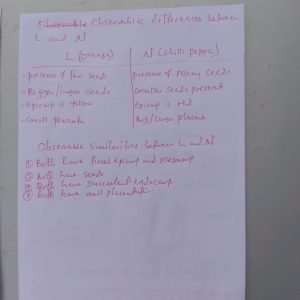 Observable differences between
L and N
L (orange) N (chilli pepper)
- presence of few seeds presence of many seeds
- Bigger/larger seeds smaller seeds present
- Epicarp is yellow Epicarp is red
- Small placenta Big/large placenta
Observable similarities between L and N
① Both have fused epicarp and mesocarp
② Both have seeds
③ Both have succulent endocarp
④ Both have axil placentation